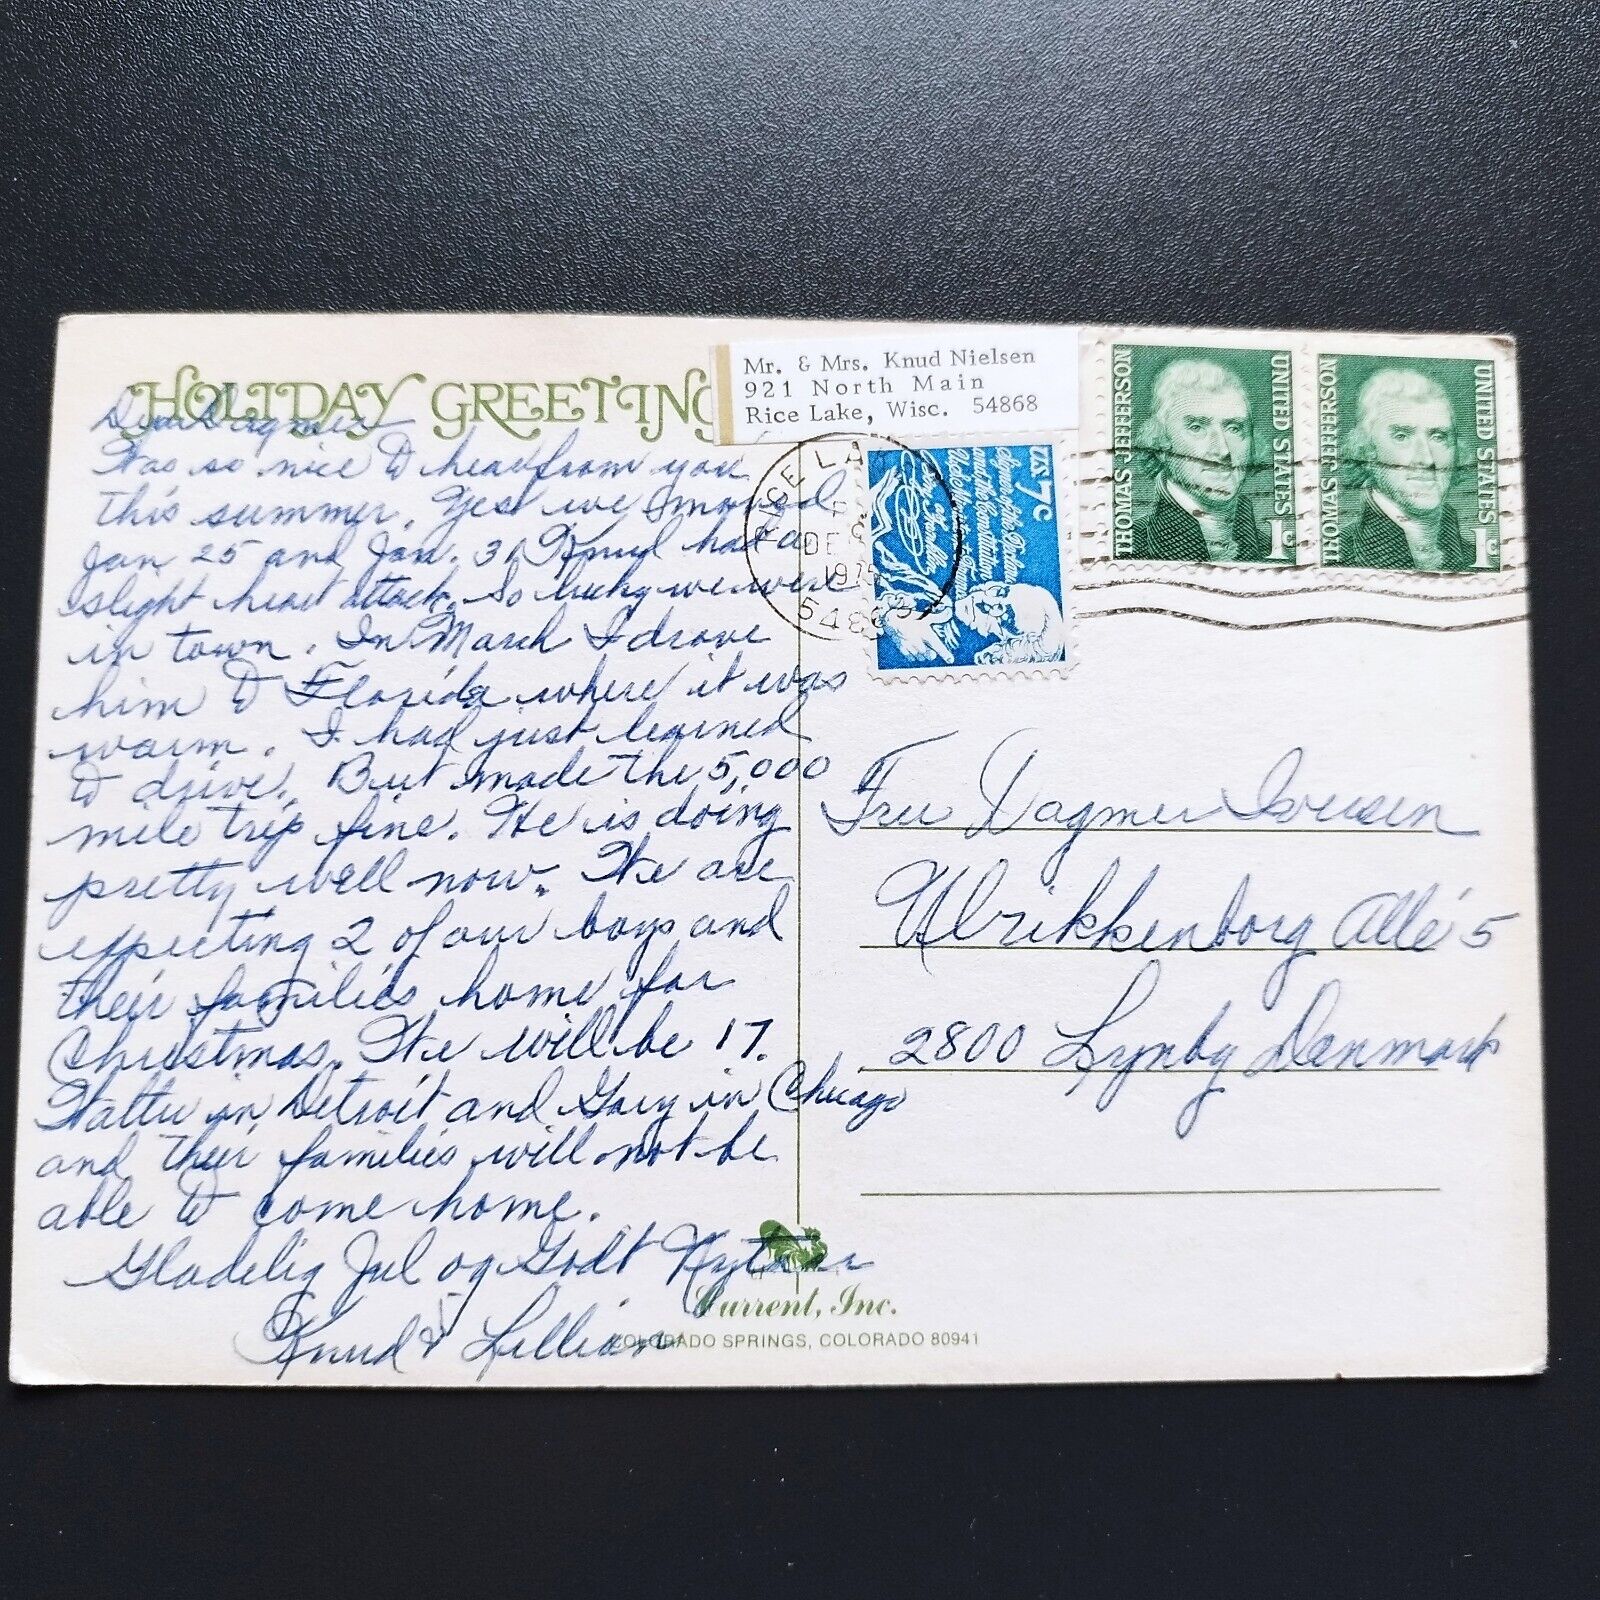 HOLIDAY GREETING
Dear Dagmar
Was so nice to hear from you
this summer. Yes we moved
Jan 25 and Jan. 31 Knud had a
slight heart attack. So lucky we were
in town. In March I drove
him to Florida where it was
warm. I had just learned
to drive. But made the 5,000
mile trip fine. He is doing
pretty well now. We are
expecting 2 of our boys and
their families home for
Christmas. We will be 17.
in Detroit and Gary in Chicago
and their families will not be
able to come home.
Glædelig Jul og Godt Nytaar
Knud & Lillian
Mr. & Mrs. Knud Nielsen
921 North Main
Rice Lake, Wisc. 54868
RICE LA
DE
1975
54868
US 7c
THOMAS JEFFERSON
UNITED STATES
1c
THOMAS JEFFERSON
UNITED STATES
1c
Fru Dagmar Iversen
Ulrikkenborg Allé 5
2800 Lyngby Denmark
Current, Inc.
COLORADO SPRINGS, COLORADO 80941